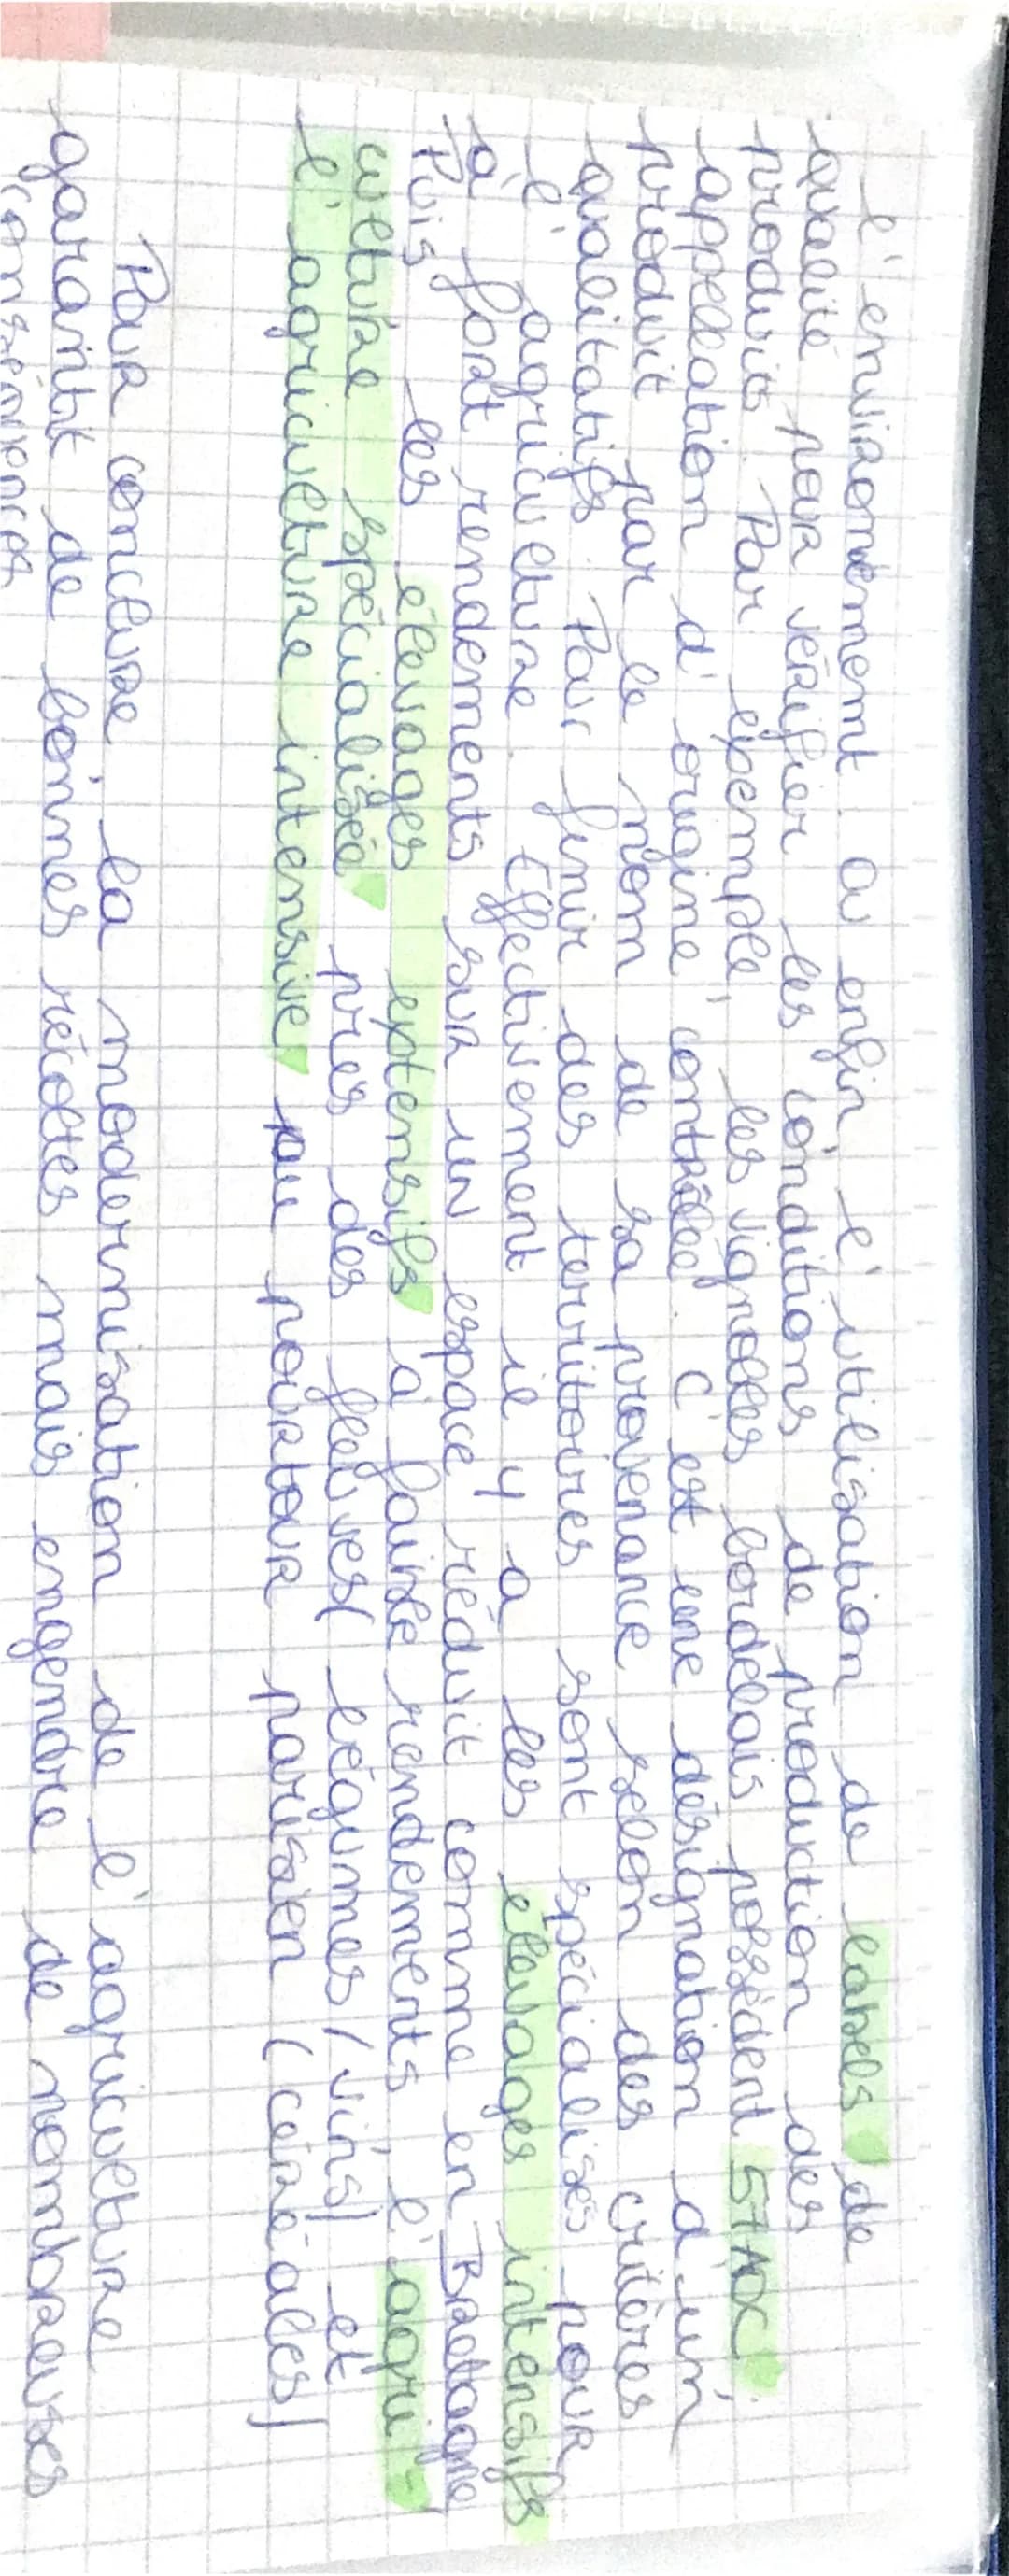 l'environnement ou enfin l'utilisation de labels de
qualité pour vérifier les conditions de production des
produits. Par exemple, les vignobles bordelais possèdent 57 AOC
appelation d'origine contrôlée. C'est une désignation d'un
produit par le nom de sa provenance selon des critères
qualitatifs. Pour finir des territoires sont spécialisés pour
l'agriculture. Effectivement il y a les élevages intensifs
à fort rendements sur un espace réduit comme en Bretagne
Puis les élevages extensifs à faible rendements, l'agri-
culture spécialisée près des fleuves (légumes / vins) et
l'agriculture intensive au pourtour parisien (céréales)
Pour conclure, la modernisation de l'agriculture
garantit de bonnes récoltes mais engendre de nombreuses
conséquences